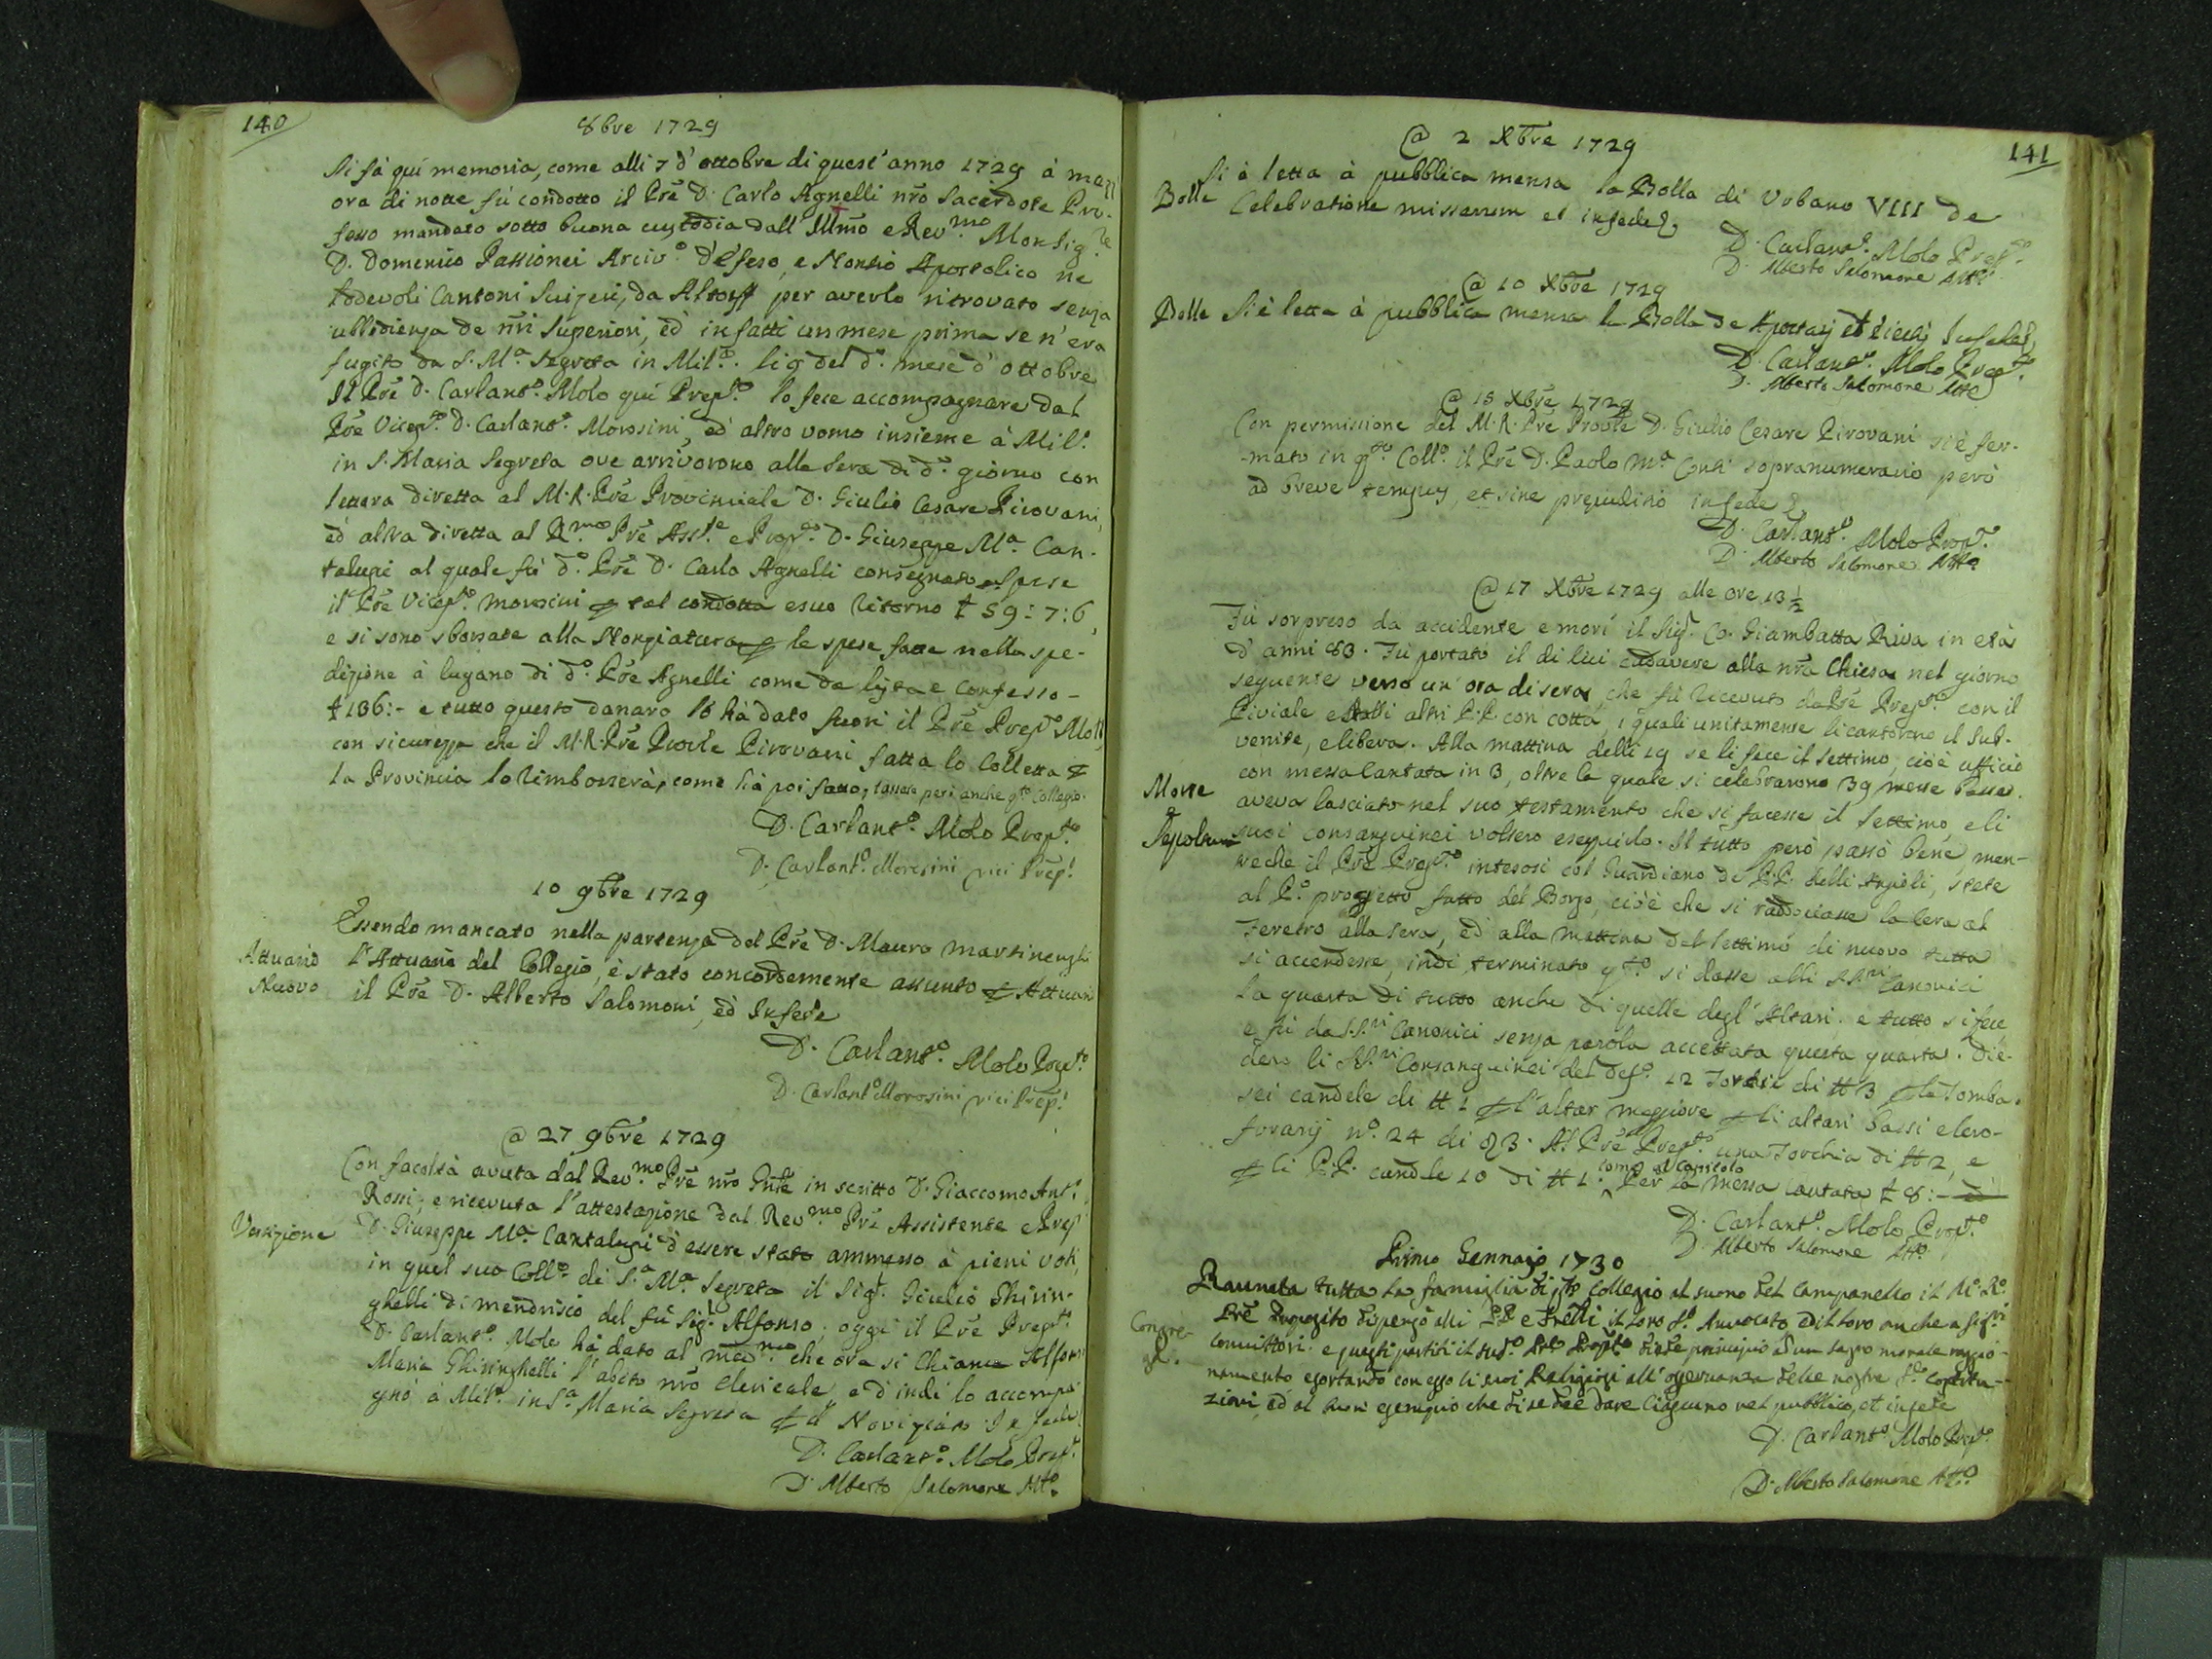 140
8bre 1729
Si fà quì memoria, come alli 7 d'ottobre di quest'anno 1729 à mezz
ora di notte fù condotto il Pře D. Carlo Agnelli nr̃o Sacerdote Pro-
fesso mandato sotto buona custodia dall'Illm̃o e Rev.mo Monsig.re
D. Domenico Passionei Arciv.o d'Efeso, e Nonsio Apostolico ne
lodevoli Cantoni Svizeri, da Altorff per averlo ritrovato senza
ubbidienza de nr̃i Superiori, ed in fatti un mese prima se n'era
fugito da S. M.a Segreta in Mil.o. li 9 del d.o mese d'ottobre
Il Pře D. Carlant.o Molo quì Prep.to lo fece accompagnare dal
Pře Vicep.to D. Carlant.o Morosini, ed altro uomo insieme à Mil.o
in S. Maria Segreta ove arrivorono alla sera di d.o giorno con
lettera diretta al M.R. Pře Provinciale D. Giulio Cesare Pirovani,
ed altra diretta al R.mo Pře Ass.te e Prep.to D. Giuseppe M.a Can-
talupi al quale fù d.o Pře D. Carlo Agnelli consegnato. Spese
il Pře Vicep.to Morosini p tal condotta e suo ritorno ₤ 59:7:6,
e si sono sborsate alla Nonziatura p le spese fatte nella spe-
dizione à Lugano di d.o Pře Agnelli come da lista e Confesso-
₤ 136:- e tutto questo danaro lo hà dato fuori il Pře Prep.to Molo,
con sicurezza che il M.R. Pře Provle Pirovani fatta la Colletta p
la Provincia lo rimborserà, come hà poi fatto, tassata però anche q.to Collegio.
D. Carlant.o Molo Prep.to
D. Carlant.o Morosini vici Prep.t
10 9bre 1729
Essendo mancato nella partenza del Pře D. Mauro Martinenghi
Attuario
Nuovo
l'Attuario del Collegio, è stato concordemente assunto p Attuari
il Pře D. Alberto Salomoni, ed Infede
D. Carlant.o Molo Prep.to
D. Carlant.o Morosini vici Prep.t
@ 27 9bre 1729
Con facoltà avuta dal Rev.mo Pře nr̃o Gñle in scritto D. Giaccomo Ant.o
Rossi, e ricevuta l'attestazione dal Rev.mo Pře Assistente e Prep
Vestizione
D. Giuseppe M.a Cantalupi d'essere stato ammesso à pieni voti
in quel suo Coll.o di S.a M.a Segreta il Sig.r Giulio Ghirin-
ghelli di Mendrisio del fù Sig.r Alfonso, oggi il Pře Prep.to
D. Carlant.o Molo hà dato al med.mo che ora si chiama Alfons
Maria Ghiringhelli l'abito nr̃o clericale, e d'indi lo accompa
gnò à Mil.o in S.a Maria Segreta p il Noviziato. In fede
D. Carlant.o Molo Prep.t
D. Alberto Salomone Att.o
141
@ 2 Xbre 1729
Bolle
Si è letta à pubblica mensa la Bolla di Urbano VIII de
Celebratione missarum et infede
D. Carlant.o Molo Prep.to
D. Alberto Salomone Att.o
@ 10 Xbre 1729
Bolle
Si è letta à pubblica mensa la Bolla de Apostasij et Eiectis Infede
D. Carlant.o Molo Prep.to
D. Alberto Salomone Atto
@ 15 Xbre 1729
Con permissione del M.R. Pře Provle D. Giulio Cesare Pirovani si è fer-
mato in q.to Coll.o il Pře D. Paolo M.a Conti sopranumerario però
ad breve tempus, et sine prejudicio infede
D. Carlant.o Molo Prep.to
D. Alberto Salomone Att.o
@ 17 Xbre 1729 alle ore 13 ½
Fù sorpreso da accidente e morì il Sig.r Co. Giambatta Riva in età
d'anni 83. Fù portato il di lui cadavere alla nr̃a Chiesa nel giorno
seguente verso un'ora di sera, che fù ricevuto da Pře Prep.to con il
Piviale e dalli altri P.P. con cotta, i quali unitamente li cantorono il Sub-
venite, e libera. Alla mattina delli 19 se li fece il settimo, cioè ufficio
con messa cantata in 3, oltre la quale si celebrarono 39 messe basse.
Morte
e
Sepoltura
aveva lasciato nel suo testamento che si facesse il Settimo, e li
suoi consanguinei volsero eseguirlo. Il tutto però passò bene men-
tre che il Pře Prep.to intesosi col Guardiano de P.P. delli Angioli, stete
al P.o progetto fatto del Borgo, cioè che si raddociasse la cera al
Feretro alla sera, ed alla mattina del settimo di nuovo tutta
si accendesse, indi terminato q.to si dasse alli SS.ri Canonici
la quarta di tutto anche di quelle degl'Altari. e tutto si fece,
e fù da SS.ri Canonici senza parola accettata questa quarta. Die-
dero li SS.ri Consanguinei del def.o 12 Torchie di ₶ 3 p la Tomba.
sei candele di ₶ 1 p l'altar maggiore p li altari bassi e cero-
forarij n.o 24 di 3. Al Pře Prep.to una Torchia di ₶ 2, e
p li P.P. candele 10 di ₶ 1. come al capitolo Per la messa cantata ₤ 8:-
D. Carlant.o Molo Prep.to
D. Alberto Salomone Att.o
Primo Gennaio 1730
Raunata tutta la famiglia di q.to Collegio al suono del Campanello il M.o R.o
Congre-
g.e
Pře Preposito dispensò alli PP e Frelli il loro S.o Avvocato, dittoro anche a Sig.ri
Convittori: e questi partiti il sud.o Pře Prep.to diede principio ad un sagro morale raggio-
namento esortando con esso li suoi Religiosi all'osservanza delle nostre S.te Costitu-
zioni, ed al buon esempio che si dee dare Ciascuno nel pubblico, et infede
D. Carlant.o Molo Prep.to
D. Alberto Salomone Att.o